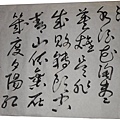 浪花淘尽
英雄是非
成敗轉頭空
青山依舊在
幾度夕陽紅